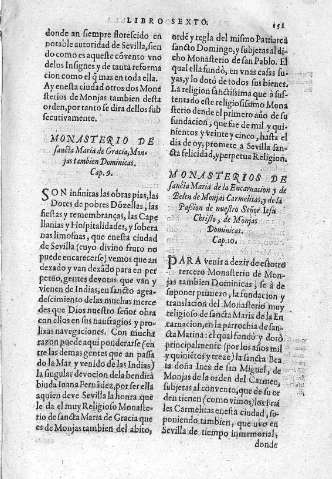 LIBRO SEXTO. 151
donde an siempre florescido en
notable autoridad de Sevilla, sien
do como es aqueste cōvento vno
delos Insignes y de tāta reforma
cion como el q̃ mas en toda ella.
Ay en esta ciudad otros dos Mone
sterios de Monjas tambien desta
orden, por tanto se dira dellos sub
secutivamente.
MONASTERIO DE
sancta Maria de Gracia, Mon
jas tambien Dominicas.
Cap. 9.
SON infinitas las obras pias, las
Dotes de pobres Dōzellas, las
fiestas y remembranças, las Cape
llanias y Hospitalidades, y sobera
nas limosnas, que en esta ciudad
de Sevilla (cuyo divino fruto no
puede encarecerse) vemos que an
dexado y van dexādo para en per
petuo, gentes devotas que van y
vienen de Indias, en sancto agra-
descimiento de las muchas merce
des que Dios nuestro señor obra
con ellos en sus naufragios y pro-
lixas navegaciones. Con mucha
razon puede aqui ponderarse (en
tre las demas gentes que an passa
do la Mar y venido de las Indias)
la singular devocion dela bendita
biuda Ioana Fernādez, por ser ella
aquien deve Sevilla la honra que
le da el muy Religioso Monaste-
rio de sancta Maria de Gracia que
es de Monjas tambien del abito,
ordē y regla del mismo Patriarca
sancto Domingo, y subjetas al di-
cho Monasterio de san Pablo. El
qual ella fundò, en vnas casas su-
yas, y lo dotò de todos sus bienes.
La religion sanctissima que à su-
stentado este religiosissimo Mona
sterio desde el primero año de su
fundacion, que fue de mil y qui-
nientos y veinte y cinco, hasta el
dia de oy, promete a Sevilla san-
cta felicidad, y perpetua Religion.
MONASTERIOS DE
sancta Maria de la Encarnacion y de
Belen de Monjas Carmelitas, y de la
Passion de nuestro Señor Iesu
Christo, de Monjas
Dominicas.
Cap. 10.
PARA venir a dezir de estotro
tercero Monasterio de Mon-
jas tambien Dominicas, se à de
suponer primero, la fundacion y
translacion del Monasterio muy
religioso de sancta Maria de la En
carnacion, en la parrochia de san-
cta Marina: el qual fundò y dotò
principalmente (por los años mil
y quiniētos y treze) la sancta Bea
ta doña Ines de san Miguel, de
Monjas de la orden del Carmen,
subjetas al convento, que de su or
den tienen (como vimos) los frai
les Carmelitas en esta ciudad, su-
poniendo tambien, que uvo en
Sevilla de tiempo inmemorial,
donde